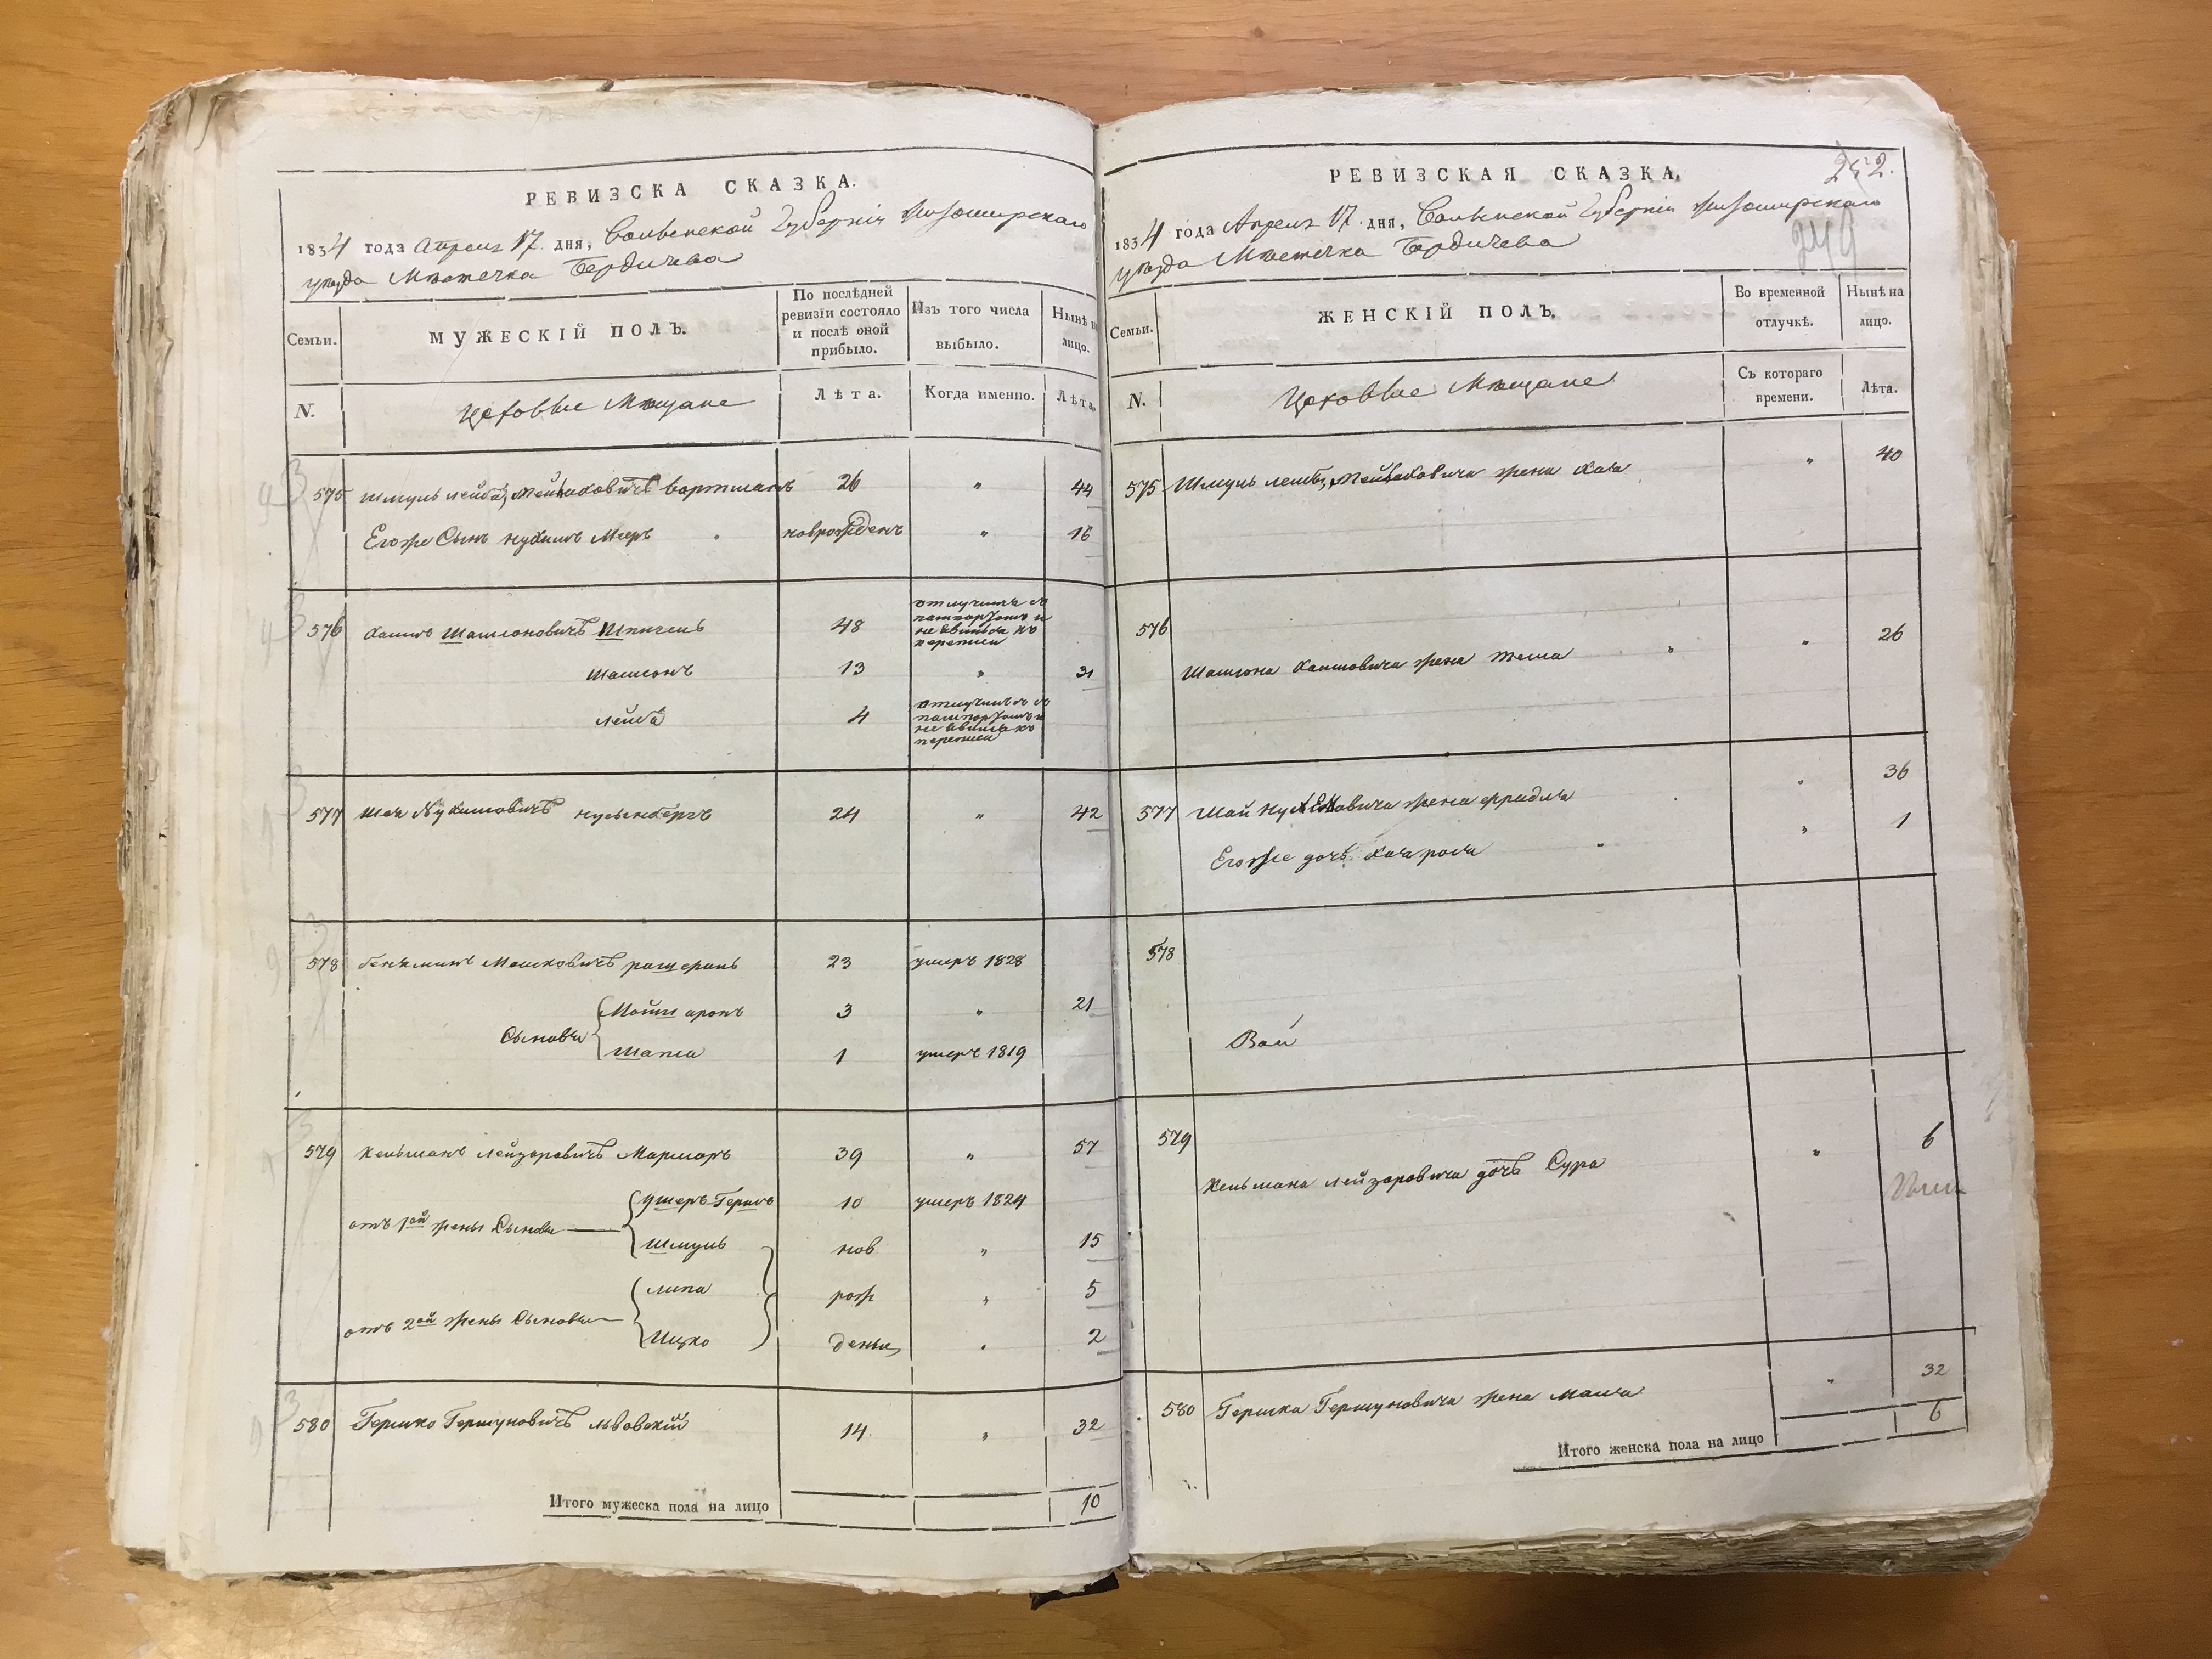 РЕВИЗСКА СКАЗКА.
1834 года Апреля 17 дня, Волынской Губерніи Житомирскаго
уѣзда Мѣстечка Бердичева
Семьи.
МУЖЕСКІЙ ПОЛЪ.
По послѣдней
ревизіи состояло
и послѣ оной
прибыло.
Изъ того числа
выбыло.
Нынѣ на
лицо.
N.
Цеховые Мѣщане
Лѣта.
Когда именно.
Лѣта.
575 Шмуль Лейба 26 " 44
Егоже Сынъ Нухимъ Мееръ новрожденъ " 16
576 Хаимъ Шамсоновичъ Шпигель 48 отлучился съ
пашпортомъ и
не явился къ
переписи
Шамсонъ 13 " 31
Лейба 4 отлучился съ
пашпортомъ и
не явился къ
переписи
577 Шая Нухимовичъ Нусенбергъ 24 " 42
578 Беньминъ Мошковичъ 23 умеръ 1828
Сыновья Мойше аронъ 3 " 21
Шапса 1 умеръ 1819
579 Кельманъ Лейзоровичъ Марморъ 39 " 57
отъ 1ой жены Сыновья Ушеръ Гершъ 10 умеръ 1824
Шмуль нов " 15
отъ 2ой жены Сыновья Липа рож " 5
Ицко дены " 2
580 Гершко Гершуновичъ Львовскій 14 " 32
Итого мужеска пола на лицо 10
РЕВИЗСКАЯ СКАЗКА.
252.
249
1834 года Апреля 17 дня, Волынской Губерніи Житомирскаго
уѣзда Мѣстечка Бердичева
Семьи.
ЖЕНСКІЙ ПОЛЪ.
Во временной
отлучкѣ.
Нынѣ на
лицо.
N.
Цеховые Мѣщане
Съ котораго
времени.
Лѣта.
575 Шмуль Лейбы жена Хая " 40
576
Шамсона Хаимовича жена Тема " 26
577 Шаи Нухимовича жена Фридля " 36
Егоже дочь Хая рося " 1
578
579
Кельмана Лейзоровича дочь Сура " 6
580 Гершка Гершуновича жена Маша " 32
Итого женска пола на лицо 6